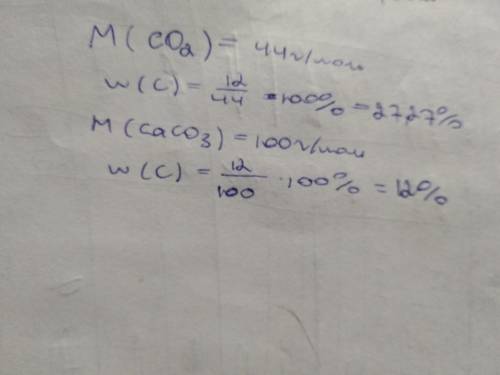 M(CO₂) = 44г/моль
w(C) = 12/44 · 100% = 27,27%
M(CaCO₃) = 100г/моль
w(C) = 12/100 · 100% = 12%